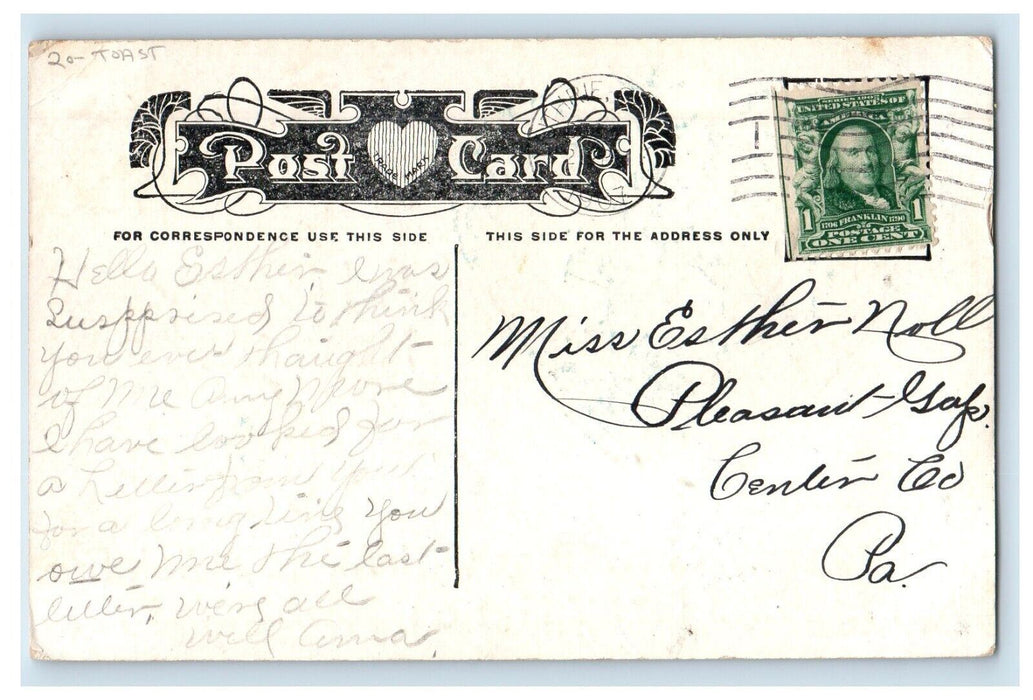 20- TOAST
Post Card
TRADE MARK
SERIES 1902
UNITED STATES OF
AMERICA
1 1706 FRANKLIN 1790 1
POSTAGE
ONE CENT
FOR CORRESPONDENCE USE THIS SIDE
THIS SIDE FOR THE ADDRESS ONLY
Hello Esther, I was
Susppprised to think
you ever thought
of me any more
I have looked for
a Letter from you
for a long time you
owe me the last
letter, we're all
well Anna.
Miss Esther Noll
Pleasant Gap.
Center Co
Pa.